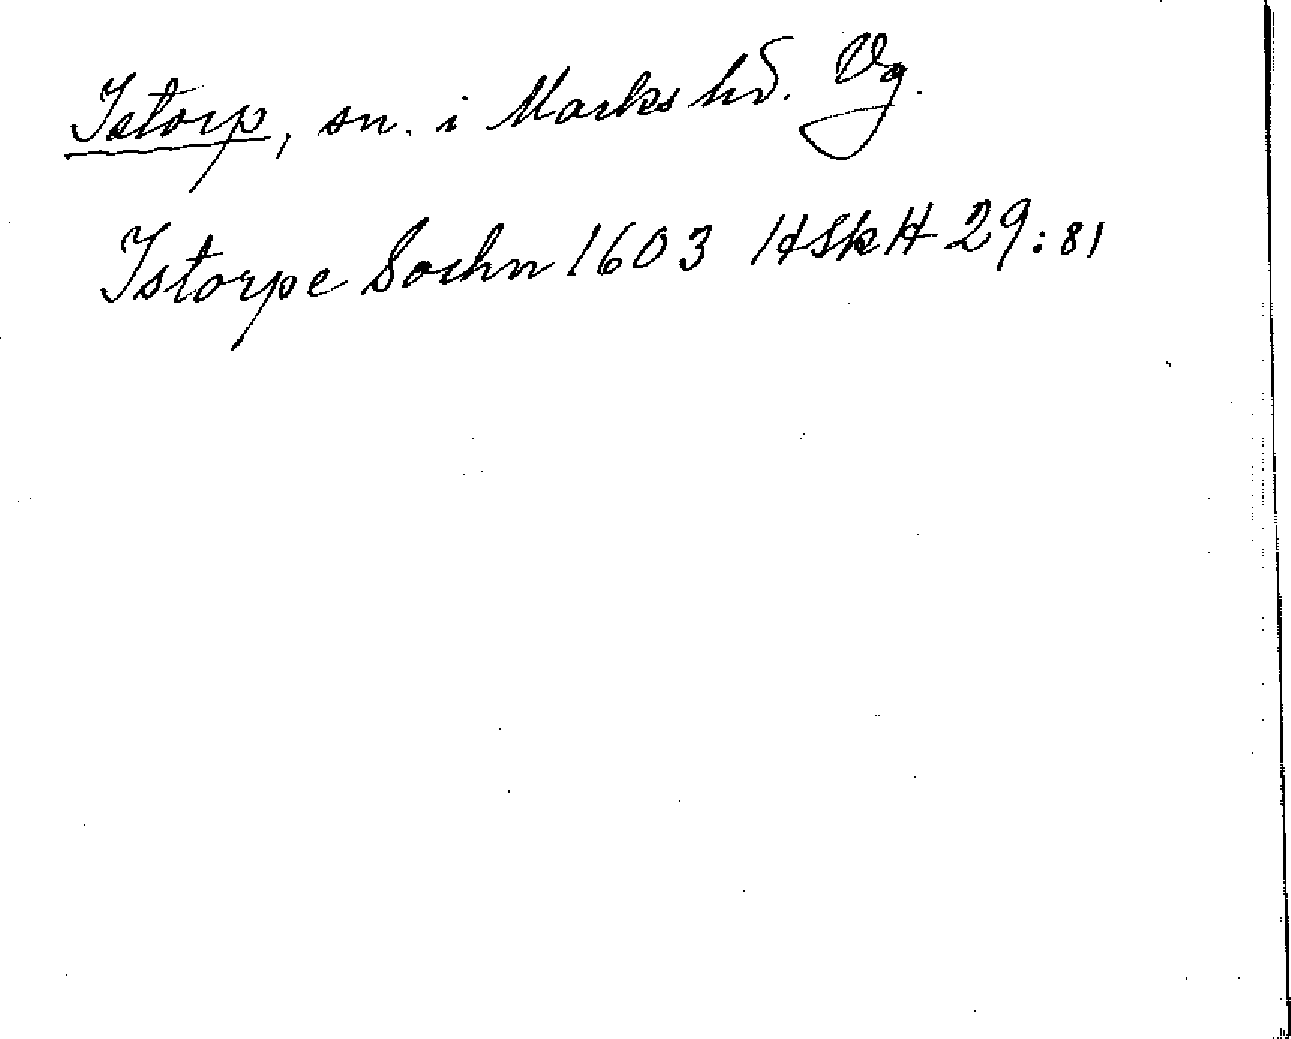 Istorp, sn. i Marks hd. Vg.
Istorpe Sochn 1603 HSkH 29:81